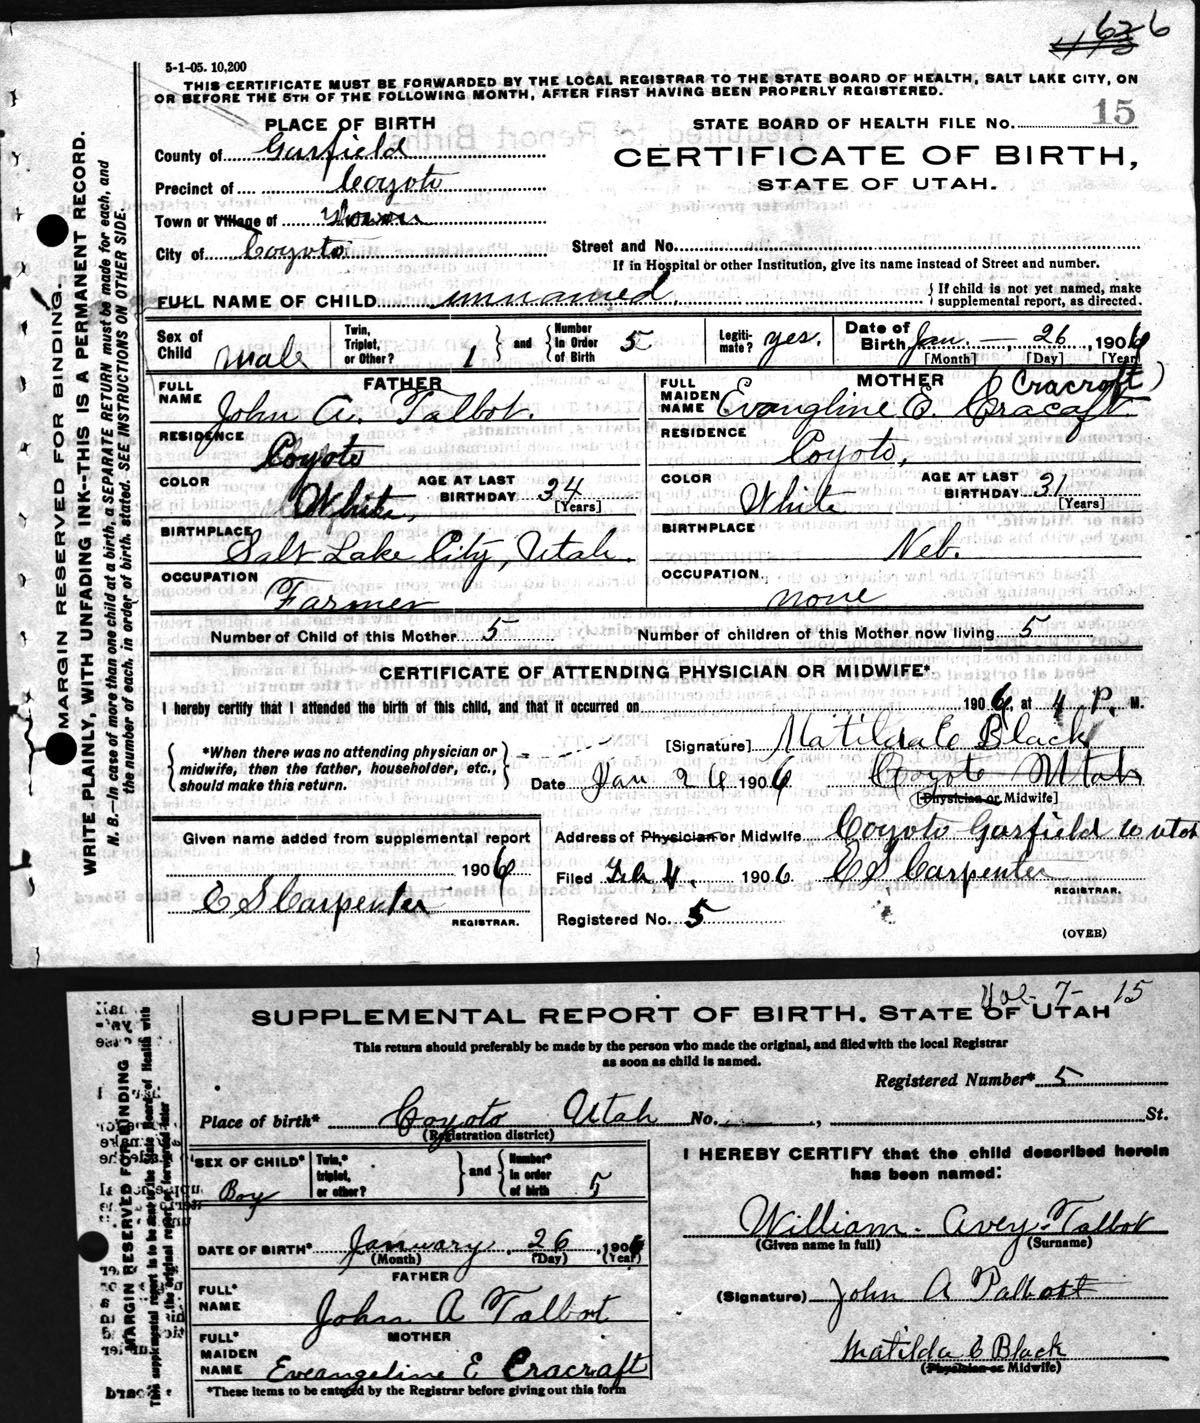 626
5-1-05. 10,200
THIS CERTIFICATE MUST BE FORWARDED BY THE LOCAL REGISTRAR TO THE STATE BOARD OF HEALTH, SALT LAKE CITY, ON
OR BEFORE THE 5TH OF THE FOLLOWING MONTH, AFTER FIRST HAVING BEEN PROPERLY REGISTERED.
PLACE OF BIRTH
STATE BOARD OF HEALTH FILE No. 15
County of Garfield
CERTIFICATE OF BIRTH,
STATE OF UTAH.
Precinct of Coyoto
Town or Village of
City of Coyoto
Street and No.
If in Hospital or other Institution, give its name instead of Street and number.
FULL NAME OF CHILD unnamed. { If child is not yet named, make
supplemental report, as directed.
Sex of Child Male
Twin, Triplet, or Other? 1 } and { Number In Order of Birth 5
Legiti-mate? yes.
Date of Birth Jan. — 26, 1906
[Month] [Day] [Year]
FATHER
FULL NAME John A. Talbot.
RESIDENCE Coyoto
COLOR White, AGE AT LAST BIRTHDAY 34 [Years]
BIRTHPLACE Salt Lake City, Utah.
OCCUPATION Farmer
MOTHER (Cracroft)
FULL MAIDEN NAME Evangline E. Cracaft
RESIDENCE Coyoto,
COLOR White AGE AT LAST BIRTHDAY 31 [Years]
BIRTHPLACE Neb.
OCCUPATION none
Number of Child of this Mother 5 Number of children of this Mother now living 5
CERTIFICATE OF ATTENDING PHYSICIAN OR MIDWIFE*
I hereby certify that I attended the birth of this child, and that it occurred on 1906, at 4 P. M.
{ *When there was no attending physician or
midwife, then the father, householder, etc.,
should make this return. }
[Signature] Matilda C Black
Date Jan 26 1906 Coyoto Utah
[Physician or Midwife]
Given name added from supplemental report
1906
C S Carpenter
REGISTRAR.
Address of Physician or Midwife Coyoto Garfield co utah
Filed Feb 4, 1906. C S Carpenter
REGISTRAR.
Registered No. 5
(OVER)
MARGIN RESERVED FOR BINDING.
WRITE PLAINLY, WITH UNFADING INK--THIS IS A PERMANENT RECORD.
N. B.—In case of more than one child at a birth, a SEPARATE RETURN must be made for each, and
the number of each, in order of birth, stated. SEE INSTRUCTIONS ON OTHER SIDE.
Vol-7- 15
SUPPLEMENTAL REPORT OF BIRTH. STATE OF UTAH
This return should preferably be made by the person who made the original, and filed with the local Registrar
as soon as child is named.
Registered Number* 5
Place of birth* Coyoto Utah No. , St.
(Registration district)
SEX OF CHILD* Boy
Twin,* triplet, or other? } and { Number* in order of birth 5
DATE OF BIRTH* January, 26, 1906
(Month) (Day) (Year)
FATHER
FULL* NAME John A Talbot
MOTHER
FULL* MAIDEN NAME Eveangeline E Cracraft
*These items to be entered by the Registrar before giving out this form
I HEREBY CERTIFY that the child described herein
has been named:
William. Avey. Talbot
(Given name in full) (Surname)
(Signature) John A Talbott
Matilda C Black
(Physician or Midwife)
MARGIN RESERVED FOR BINDING
This supplemental report to be sent to the State Board of Health with
the original report, or forwarded later